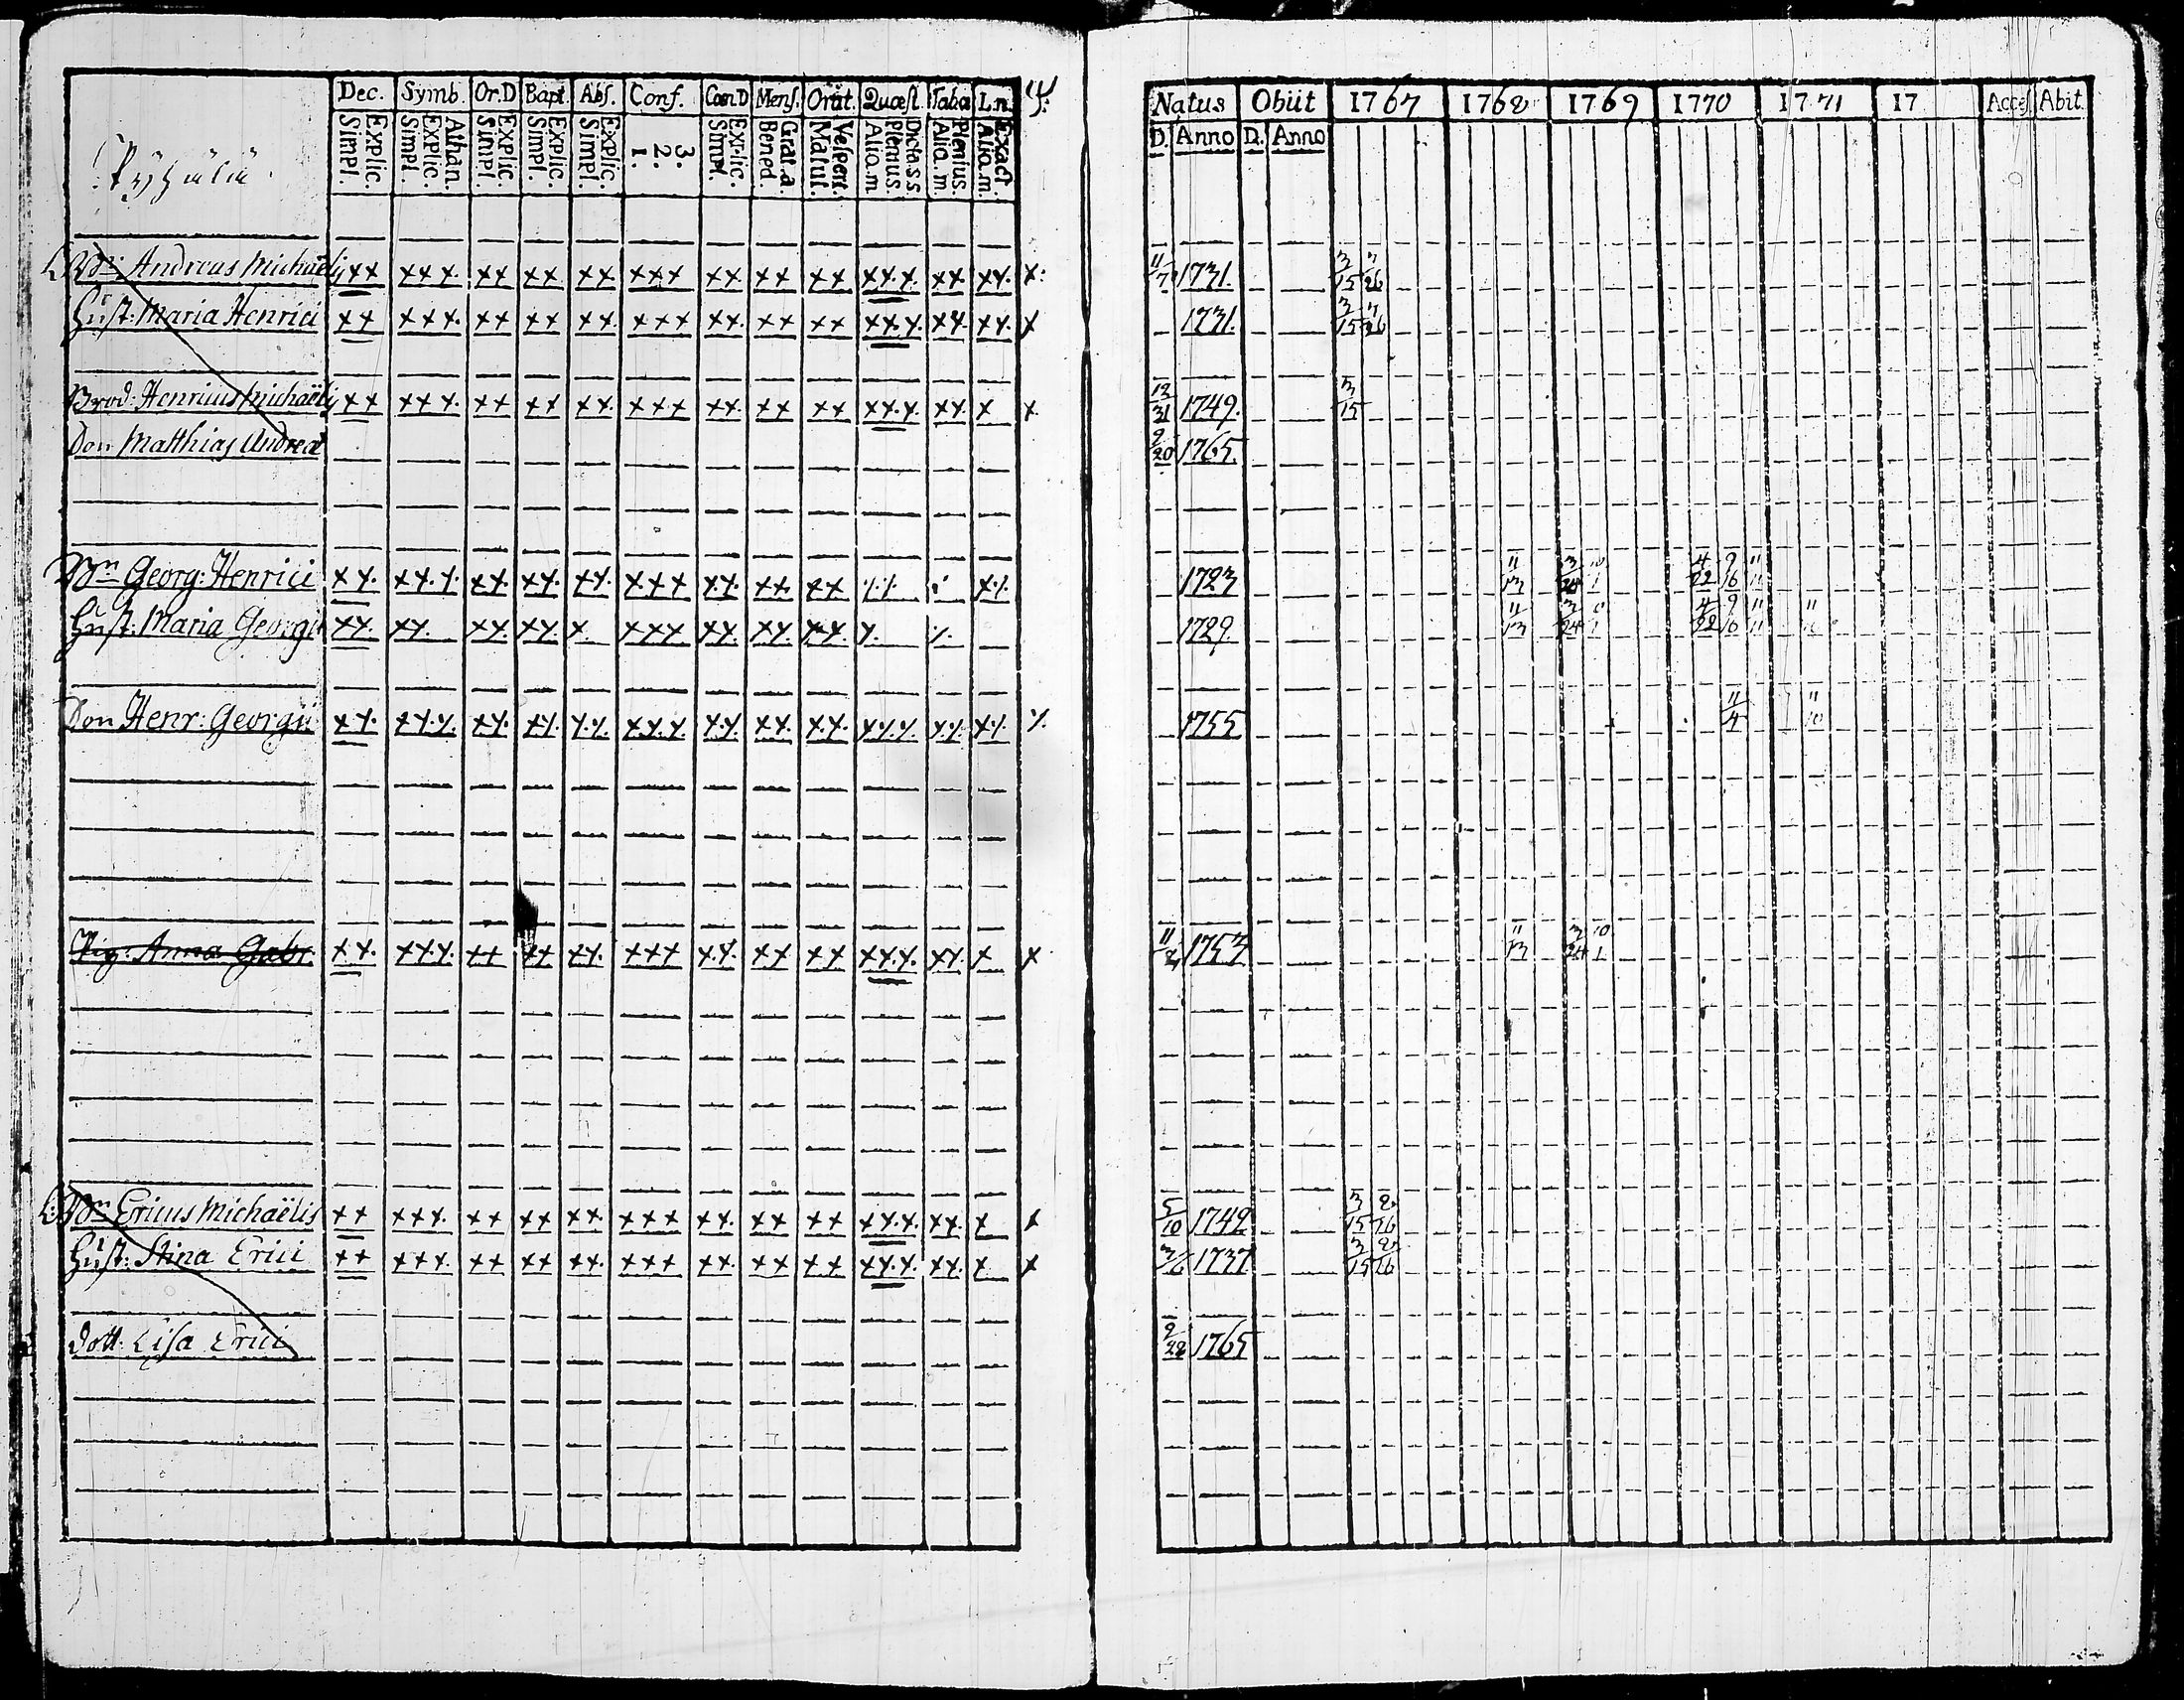 Dec. Symb. Or.D Bapt. Abs. Conf. Coen.D Mens. Orat. Quæst. Taba L.n.
Explic. Simpl. Athan. Explic. Simpl. Explic. Simpl. Explic. Simpl. Explic. Simpl. 3. 2. 1. Explic. Simpl. Grat.a Bened. Vespert. Matut. Dicta.s.s Plenius. Alia.m Plenius Alia.m. Exact. Alia.m.
Natus Obiit 1767 1768 1769 1770 1771 17 Acces. Abit.
D. Anno D. Anno
Bn: Andreas Michaëlis xx xxx xx xx xx xxx xx xx xx xxx xx xx x 11/7 1731. 3/15 7/26
Hust: Maria Henrici xx xxx xx xx xx xxx xx xx xx xxx xx xx x 1731. 3/15 7/26
Brod: Henricus Michaëlis xx xxx xx xx xx xxx xx xx xx xxx xx x x 12/31 1749. 3/15
Son Matthias Andreæ 9/20 1765.
Bn Georg: Henrici xx xxx xx xx xx xxx xx xx xx xx 1723 11/13 3/24 10/1 4/22 9/16 11/11
Hust. Maria Georgii xx xx xx xx x xxx xx xx xx x x 1729. 11/13 3/24 4/22 9/16 11/11
Son Henr: Georgii xx xxx xx xx xx xxx xx xx xx xxx xx xx x 1755 11/4 11/10
Pig: Anna Gabr. xx xxx xx xx xx xxx xx xx xx xxx xx x x 1753 11/13 3/24 10/1
Bn Ericus Michaëlis xx xxx xx xx xx xxx xx xx xx xxx xx x x 5/10 1742 3/15 2/26
Hust: Stina Erici xx xxx xx xx xx xxx xx xx xx xxx xx x x 3/6 1737 3/15 2/26
Dott. Lisa Erici 9/28 1765